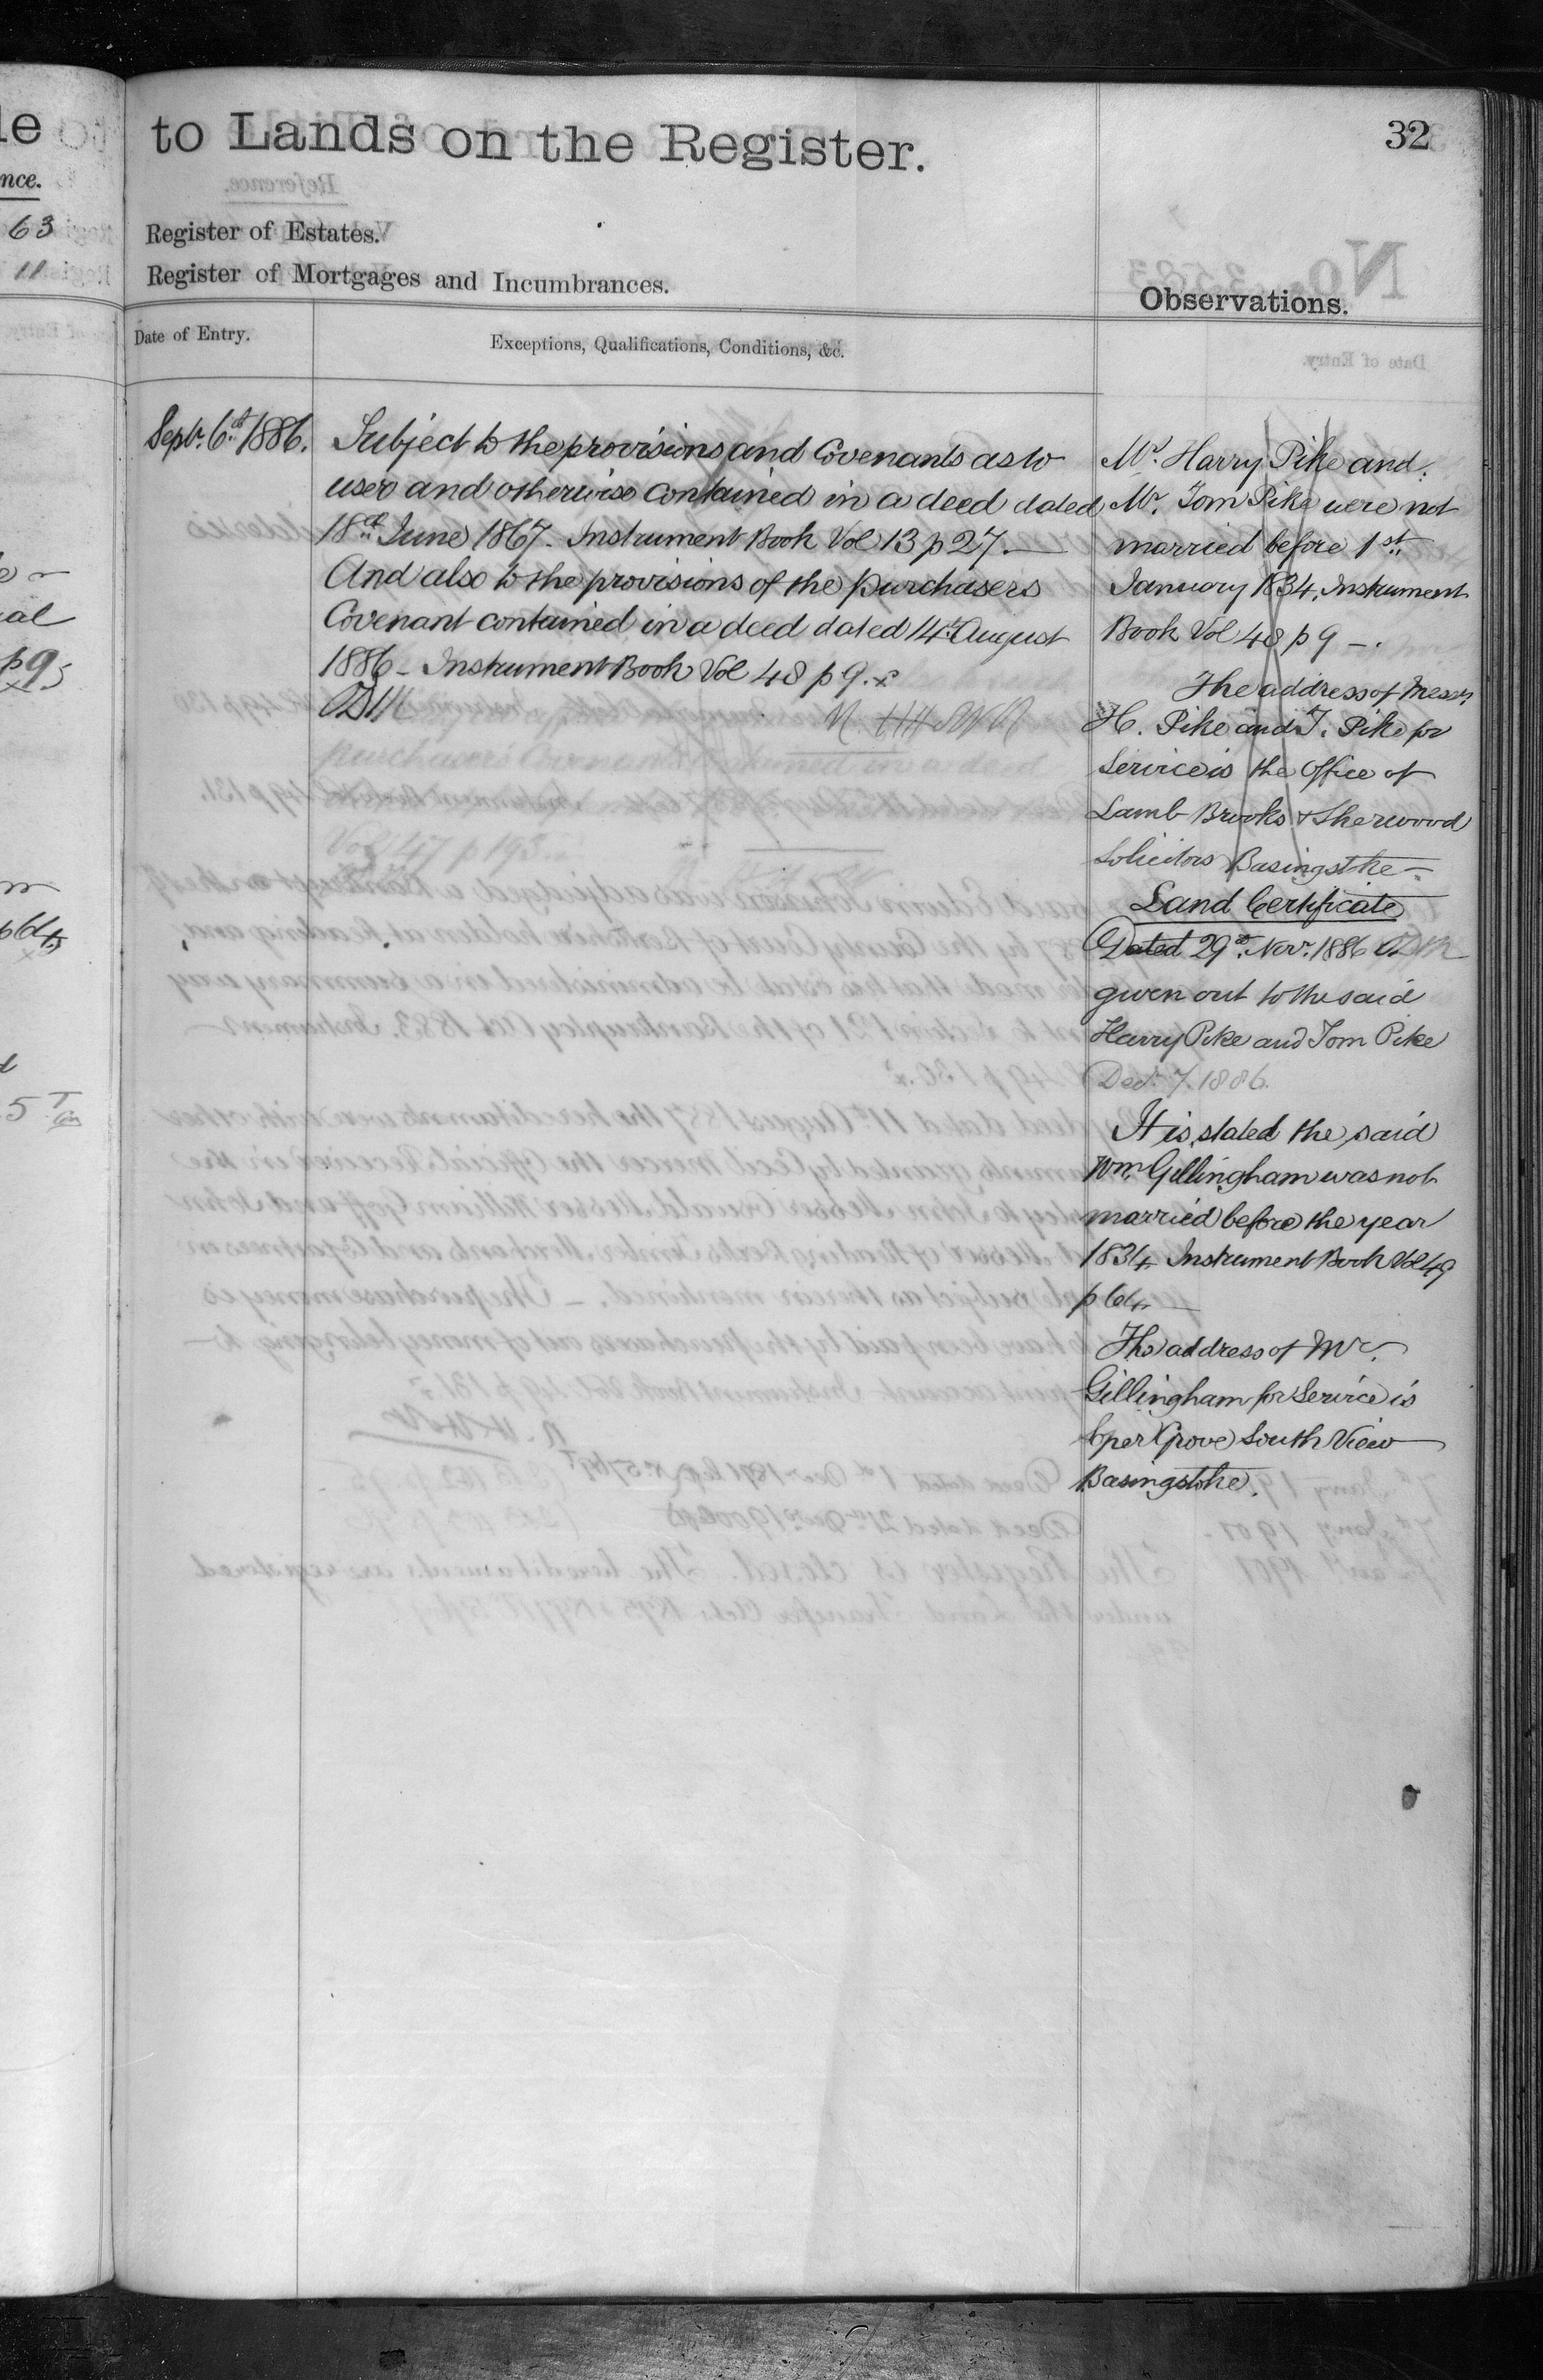 le
nce.
63
11
ial
p 9
p 64
to Lands on the Register.
32
Register of Estates.
Register of Mortgages and Incumbrances.
Observations.
Date of Entry.
Exceptions, Qualifications, Conditions, &c.
Sept. 6th 1886.
Subject to the provisions and Covenants as to
user and otherwise contained in a deed dated
18th June 1867 - Instrument Book Vol 13 p 27. —
And also to the provisions of the purchasers
Covenant contained in a deed dated 14th August
1886 - Instrument Book Vol 48 p 9. x
purchaser's Covenant contained in a deed
Vol 47 p 193
Mr. Harry Pike and
Mr. Tom Pike were not
married before 1st
January 1834. Instrument
Book Vol 48 p 9 -.
The address of Messrs
H. Pike and T. Pike for
Service is the Office of
Lamb Brooks & Sherwood
Solicitors Basingstoke -
Land Certificate
Dated 29th Novr. 1886
given out to the said
Harry Pike and Tom Pike
Decr. 7. 1886.
It is stated the said
Wm. Gillingham was not
married before the year
1834 Instrument Book Vol 49
p 64 —
The address of Mr.
Gillingham for Service is
Grove South View
Basingstoke.